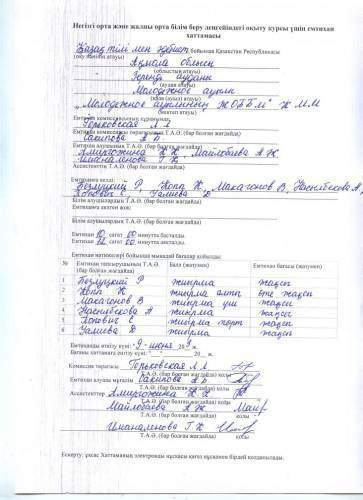 Негізгі орта және жалпы орта білім беру деңгейіндегі оқыту курсы үшін емтихан
хаттамасы
Қазақ тілі мен әдебиеті бойынша Қазақстан Республикасы
(оқу пәнінің атауы)
Ақмола облысы
(облыстың атауы)
Зеренді ауданы
(аудан атауы)
Молодежное ауылы
(қала (ауыл) атауы)
„Молодежное ауылының ЖОББМ" КММ
(мектеп атауы)
Емтихан комиссиясының құрамында:
Горьковская Л А
Емтихан комиссиясы төрағасының Т.А.Ә. (бар болған жағдайда)
Сакипова А Б
Емтихан алушының Т.А.Ә. (бар болған жағдайда)
Амиргожина К К, Майлобаева А Ж
Иманаленова Г К
Ассистенттің Т.А.Ә. (бар болған жағдайда)
Емтиханға келді:
Безлуцкий Р, Копп К, Макагонов В, Насипбекова А,
Хонович Е, Уалиева Д
Білім алушылардың Т.А.Ә. (бар болған жағдайда)
Емтиханға келген жоқ:
Білім алушылардың Т.А.Ә. (бар болған жағдайда)
Емтихан 10 сағат 00 минутта басталды.
Емтихан 12 сағат 00 минутта аяқталды.
Емтихан нәтижелері бойынша мынадай бағалар қойылды:
№ Емтихан тапсырушының Т.А.Ә. (бар болған жағдайда) Балл (жазумен) Емтихан бағасы (жазумен)
1 Безлуцкий Р жиырма жақсы
2 Копп К жиырма алты өте жақсы
3 Макагонов В жиырма үш жақсы
4 Насипбекова А жиырма жақсы
5 Хонович Е жиырма төрт жақсы
6 Уалиева Д жиырма жақсы
Емтиханды өткізу күні: „9" июня 20 ж.
Бағаны хаттамаға енгізу күні: "__" ______ 20__ ж.
Комиссия төрағасы Горьковская Л А
Т.А.Ә. (бар болған жағдайда) қолы
Емтихан алушы мұғалім Сакипова А Б
Т.А.Ә. (бар болған жағдайда) қолы
Ассистенттер Амиргожина К К
Т.А.Ә. (бар болған жағдайда) қолы
Майлобаева А Ж
Т.А.Ә. (бар болған жағдайда) қолы
Иманаленова Г К
Т.А.Ә. (бар болған жағдайда) қолы
Ескерту: ұқсас Хаттаманың электронды нұсқасы қағаз нұсқамен бірдей қолданылады.